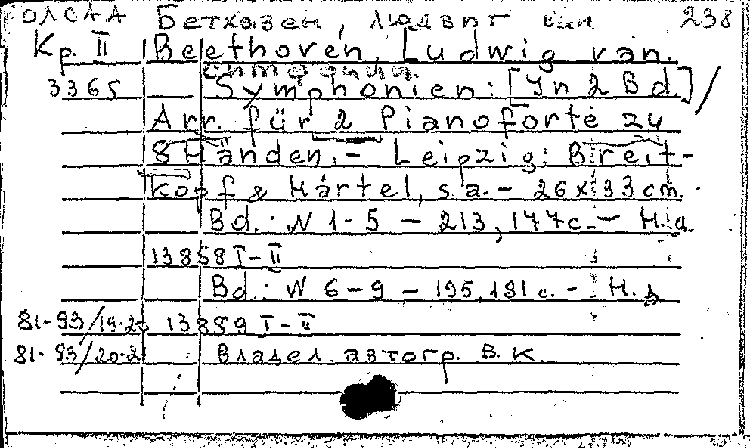 Бетховен, Людвиг ван 238
Кр. II Beethoven, Ludwig van.
Симфонии.
3365 Symphonien: [In 2 Bd.] /
Arr. für 2 Pianoforte zu
8 Händen. - Leipzig: Breit-
kopf & Härtel, s.a. - 26x33cm.
Bd.: N 1-5 - 213, 177c. - H.a.
13858 I-II
Bd.: N 6-9 - 195, 181c. - H.
13859 I-II
81-93/20-21 Владел. автогр. В.К.